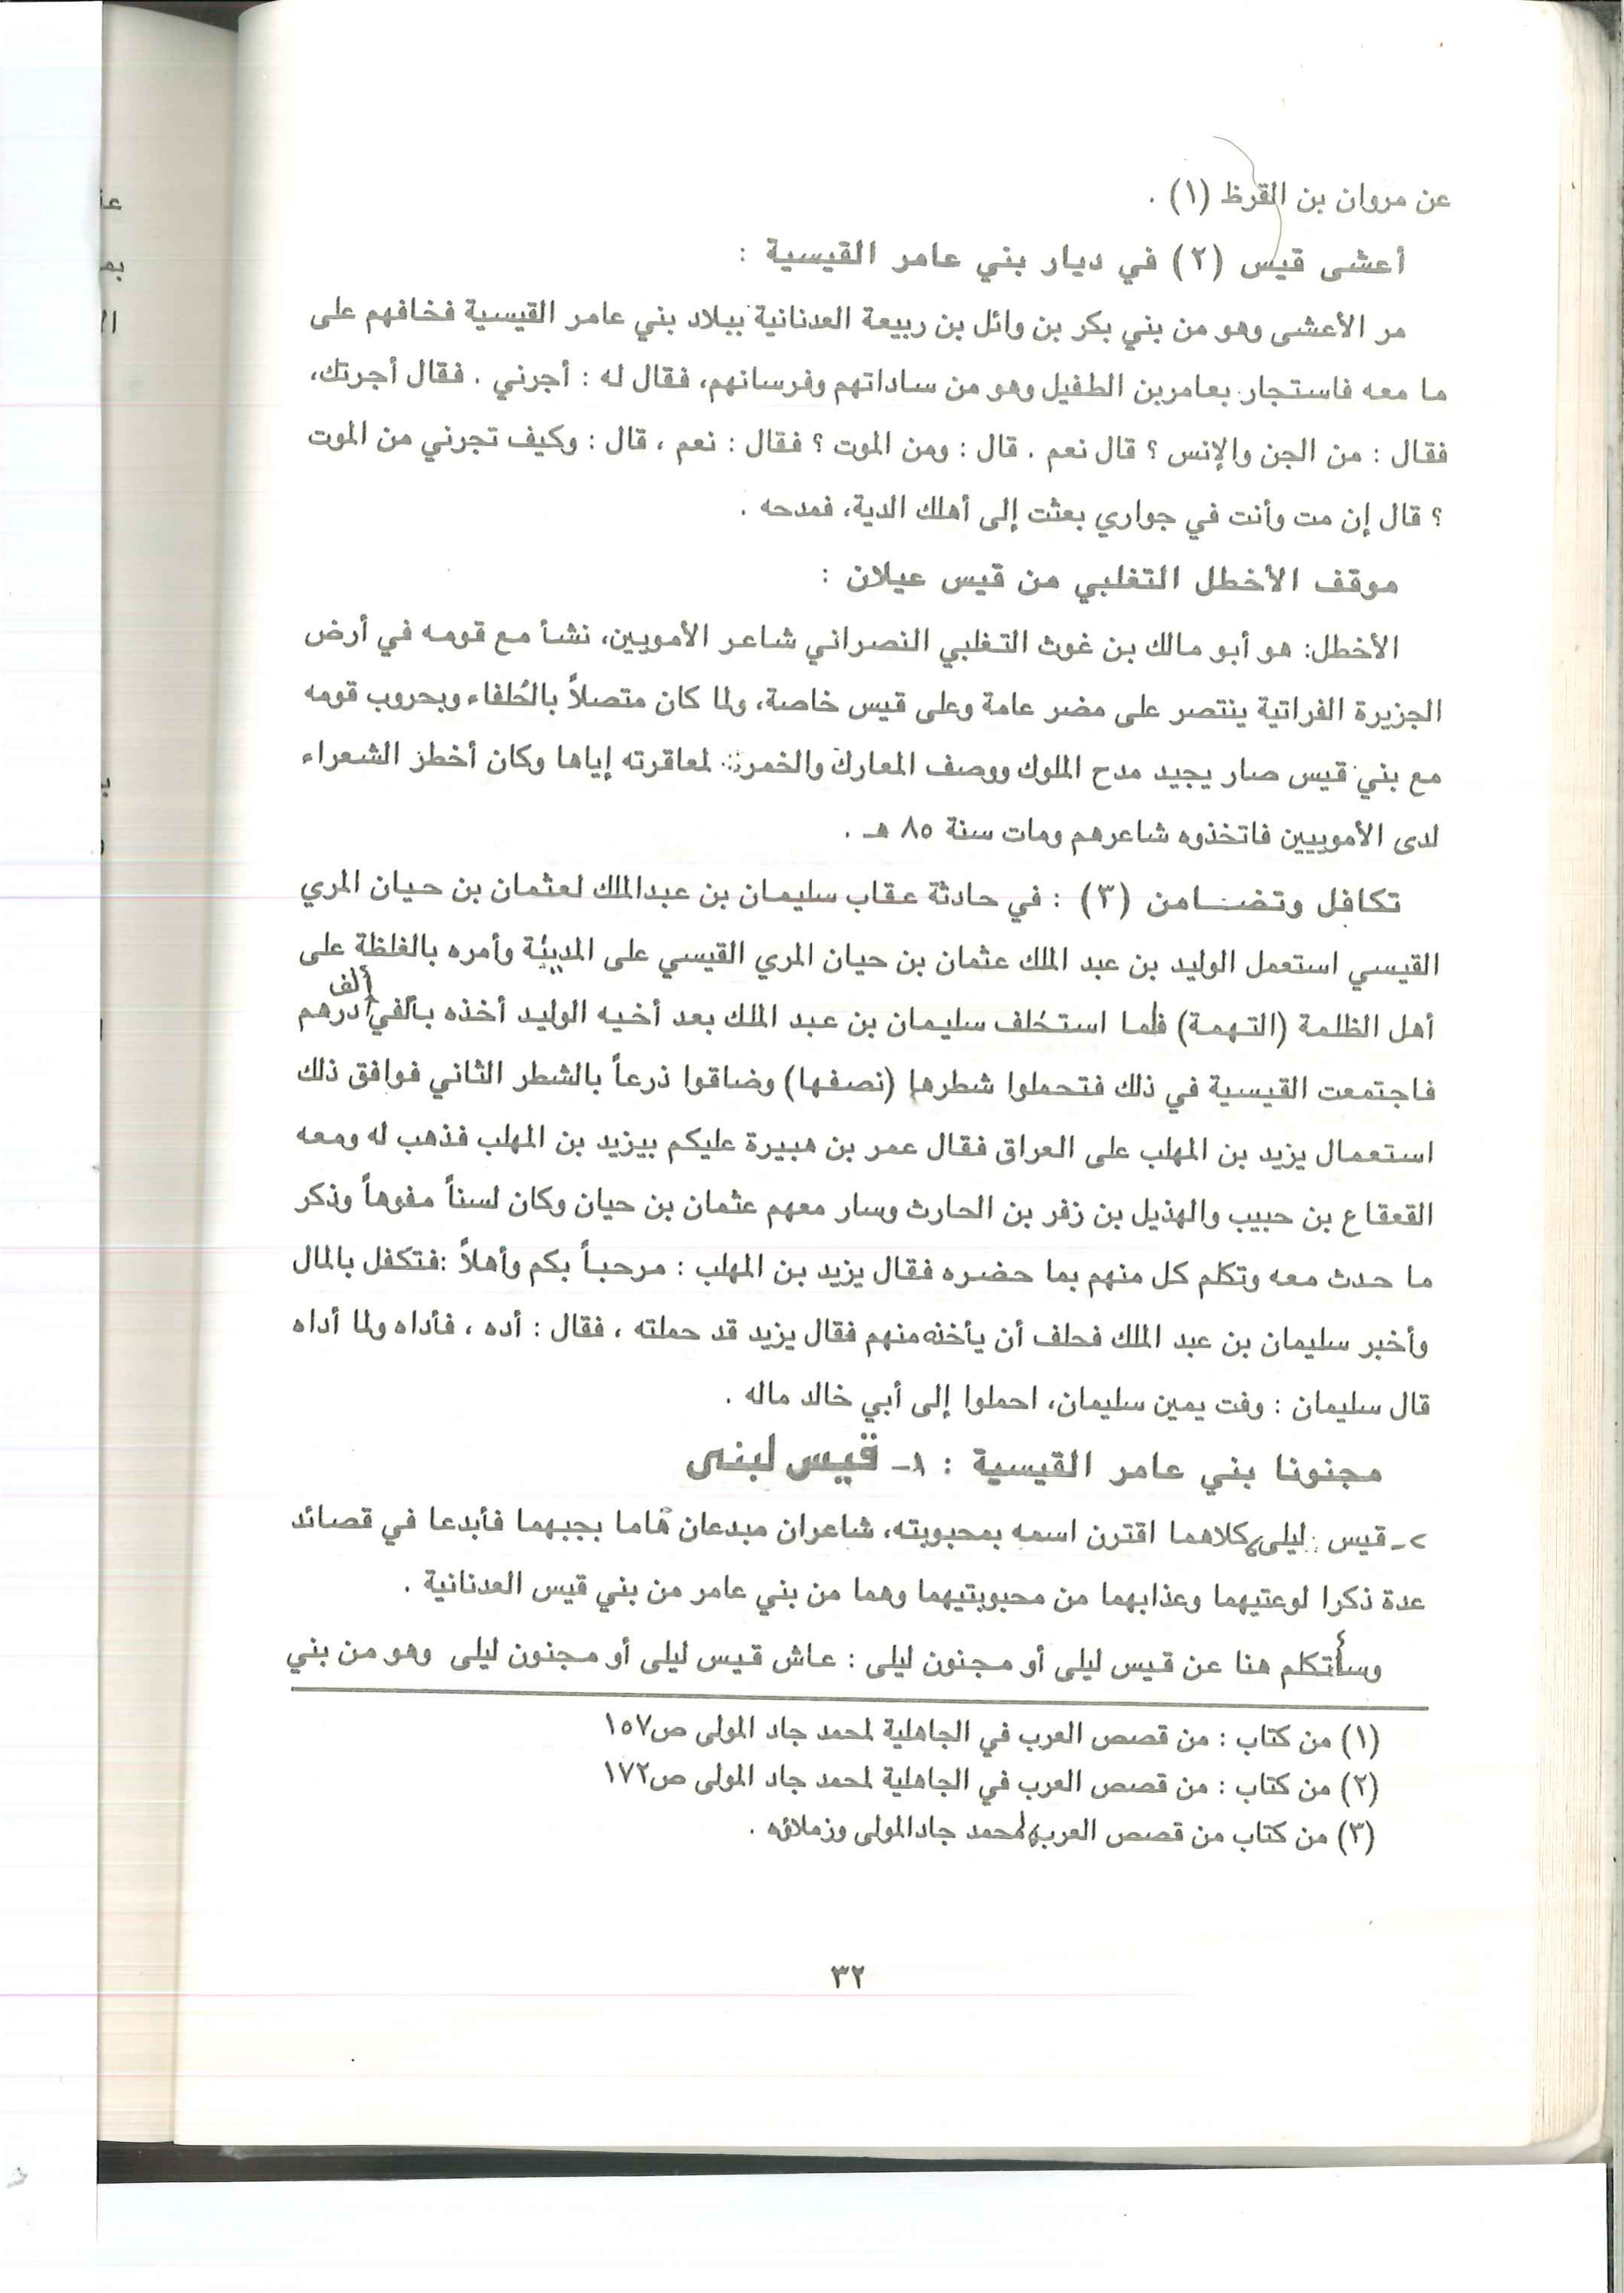 عن مروان بن القرظ (١) .
أعشى قيس (٢) في ديار بني عامر القيسية :
مر الأعشى وهو من بني بكر بن وائل بن ربيعة العدنانية ببلاد بني عامر القيسية فخافهم على
ما معه فاستجار بعامربن الطفيل وهو من ساداتهم وفرسانهم، فقال له : أجرني . فقال أجرتك،
فقال : من الجن والإنس ؟ قال نعم . قال : ومن الموت ؟ فقال : نعم ، قال : وكيف تجرني من الموت
؟ قال إن مت وأنت في جواري بعثت إلى أهلك الدية، فمدحه .
موقف الأخطل التغلبي من قيس عيلان :
الأخطل: هو أبو مالك بن غوث التغلبي النصراني شاعر الأمويين، نشأ مع قومه في أرض
الجزيرة الفراتية ينتصر على مضر عامة وعلى قيس خاصة، ولما كان متصلاً بالخلفاء وبحروب قومه
مع بني قيس صار يجيد مدح الملوك ووصف المعارك والخمر لمعاقرته إياها وكان أخطز الشعراء
لدى الأمويين فاتخذوه شاعرهم ومات سنة ٨٥ هـ .
تكافل وتضامن (٣) : في حادثة عقاب سليمان بن عبدالملك لعثمان بن حيان المري
القيسي استعمل الوليد بن عبد الملك عثمان بن حيان المري القيسي على المدينة وأمره بالغلظة على
أهل الظلمة (التهمة) فلما استخلف سليمان بن عبد الملك بعد أخيه الوليد أخذه بألفي ألف درهم
فاجتمعت القيسية في ذلك فتحملوا شطرها (نصفها) وضاقوا ذرعاً بالشطر الثاني فوافق ذلك
استعمال يزيد بن المهلب على العراق فقال عمر بن هبيرة عليكم بيزيد بن المهلب فذهب له ومعه
القعقاع بن حبيب والهذيل بن زفر بن الحارث وسار معهم عثمان بن حيان وكان لسناً مفوهاً وذكر
ما حدث معه وتكلم كل منهم بما حضره فقال يزيد بن المهلب : مرحباً بكم وأهلاً :فتكفل بالمال
وأخبر سليمان بن عبد الملك فحلف أن يأخذه منهم فقال يزيد قد حملته ، فقال : أده ، فأداه ولما أداه
قال سليمان : وفت يمين سليمان، احملوا إلى أبي خالد ماله .
مجنونا بني عامر القيسية : ١- قيس لبنى
٢- قيس ليلى كلاهما اقترن اسمه بمحبوبته، شاعران مبدعان هاما بجبهما فأبدعا في قصائد
عدة ذكرا لوعتيهما وعذابهما من محبوبتيهما وهما من بني عامر من بني قيس العدنانية .
وسأتكلم هنا عن قيس ليلى أو مجنون ليلى : عاش قيس ليلى أو مجنون ليلى وهو من بني
(١) من كتاب : من قصص العرب في الجاهلية لمحمد جاد المولى ص١٥٧
(٢) من كتاب : من قصص العرب في الجاهلية لمحمد جاد المولى ص١٧٢
(٣) من كتاب من قصص العرب لمحمد جادالمولى وزملاؤه .
٣٢